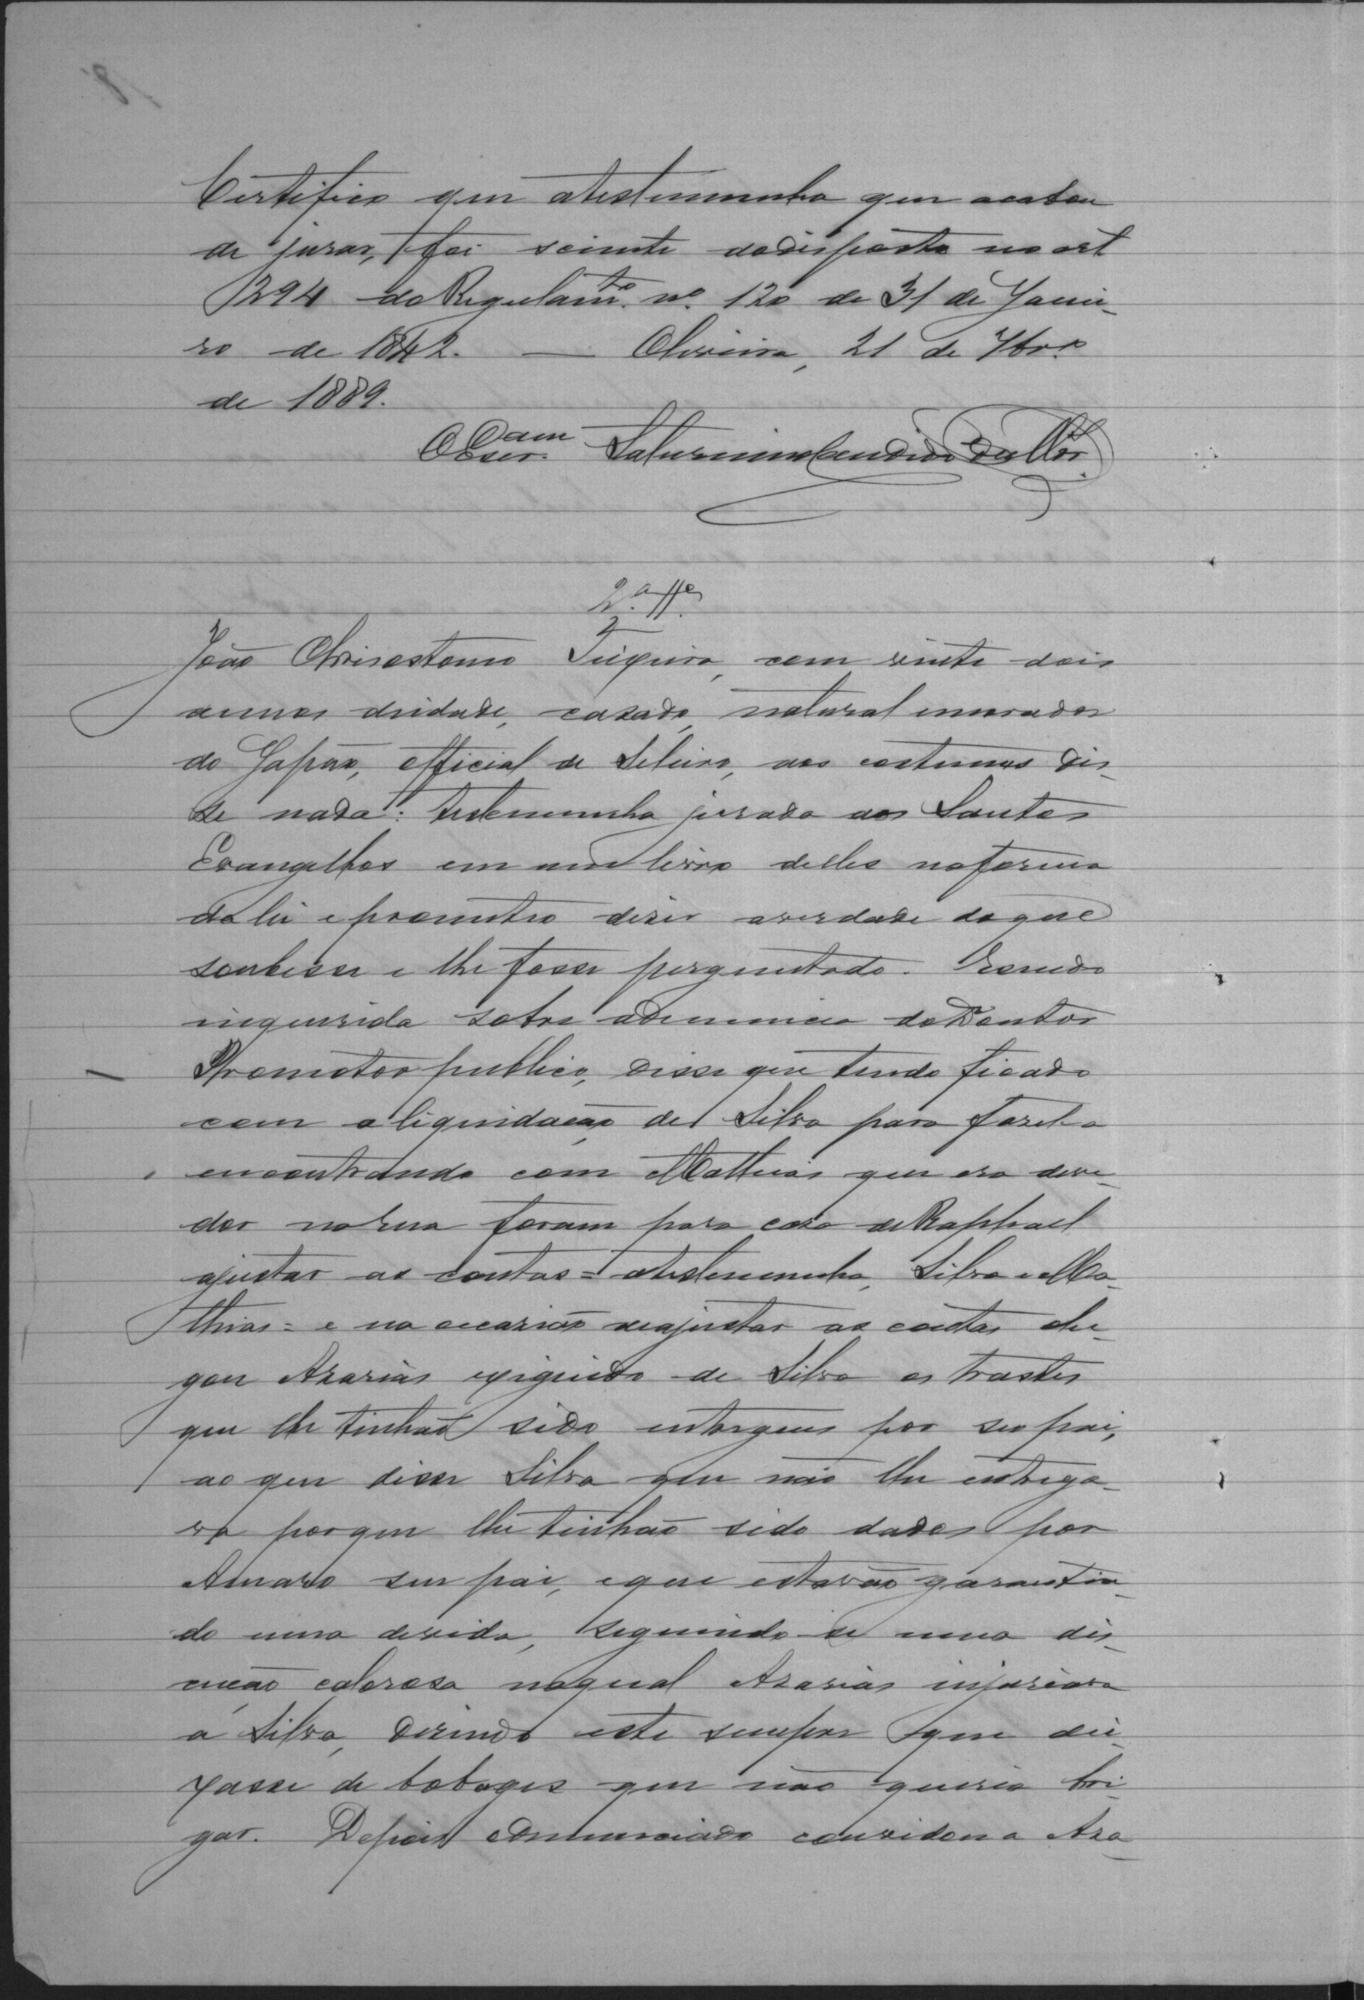 Certifico que atestemunha que acabou
de jurar, foi sciente dodisposto no art
294 do Regulam.to nº 120 de 31 de Janei-
ro de 1842. — Oliveira, 21 de 7br.o
de 1889.
O Escr.am Saturnino Candido
2.a T.e
João Chrisostomo Teixeira, com vinte dois
annos deidade, casado, natural emorador
do Japão, official de Seleiro, aos costumes dis-
se nada: testemunha jurada aos Santos
Evangelhos em um livro delles naforma
da lei eprometteo diser averdade doque
soubesse e lhe fosse perguntado. Esendo
inquirida sobre adenuncia doDoutor
Promotor publico, disse que tendo ficado
com aliquidação de Silva para fasel-a
encontrando com Mathias que era deve-
dor narua foram para casa deRaphael
ajustar as contas = atestemunha, Silva eMa-
thias = e na occasião deajustar as contas che-
gou Asarias exigindo de Silva os trastes
que lhe tinhão sido entregues por seu pai,
ao que disse Silva que não lhe entrega-
va porque lhe tinhão sido dados por
Amaro seu pai, eque estavão garantin-
do uma devida, seguindo-se uma dis-
cução calorosa naqual Asarias injuriava
a Silva, disendo este sempre que dei-
xasse de bobages que não queria bri-
gar. Depois odenunciado convidou a Asa-